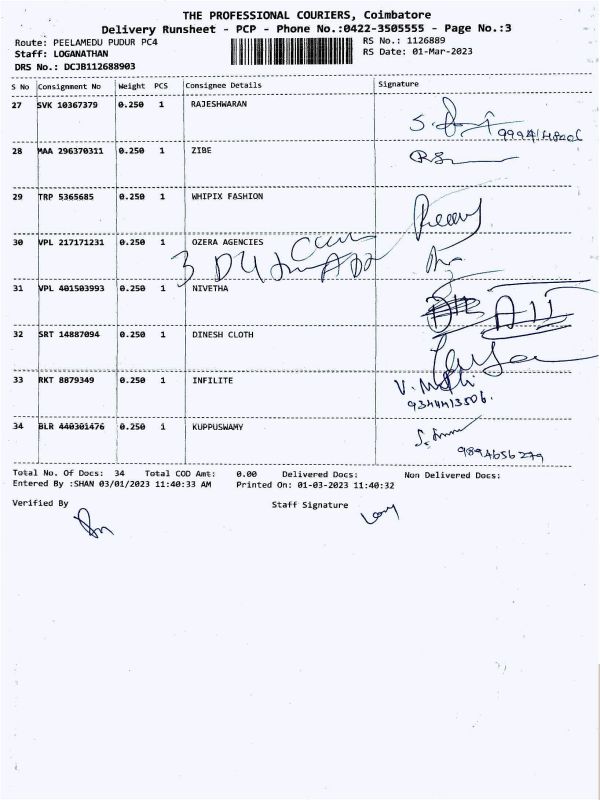 THE PROFESSIONAL COURIERS, Coimbatore
Delivery Runsheet - PCP - Phone No.:0422-3505555 - Page No.:3
Route: PEELAMEDU PUDUR PC4 RS No.: 1126889
Staff: LOGANATHAN RS Date: 01-Mar-2023
DRS No.: DCJB112688903
S No Consignment No Weight PCS Consignee Details Signature
27 SVK 10367379 0.250 1 RAJESHWARAN
28 MAA 296370311 0.250 1 ZIBE
29 TRP 5365685 0.250 1 WHIPIX FASHION
30 VPL 217171231 0.250 1 OZERA AGENCIES
31 VPL 401503993 0.250 1 NIVETHA
32 SRT 14887094 0.250 1 DINESH CLOTH
33 RKT 8879349 0.250 1 INFILITE
9344413506.
34 BLR 440301476 0.250 1 KUPPUSWAMY
9894656279
Total No. Of Docs: 34 Total COD Amt: 0.00 Delivered Docs: Non Delivered Docs:
Entered By :SHAN 03/01/2023 11:40:33 AM Printed On: 01-03-2023 11:40:32
Verified By Staff Signature